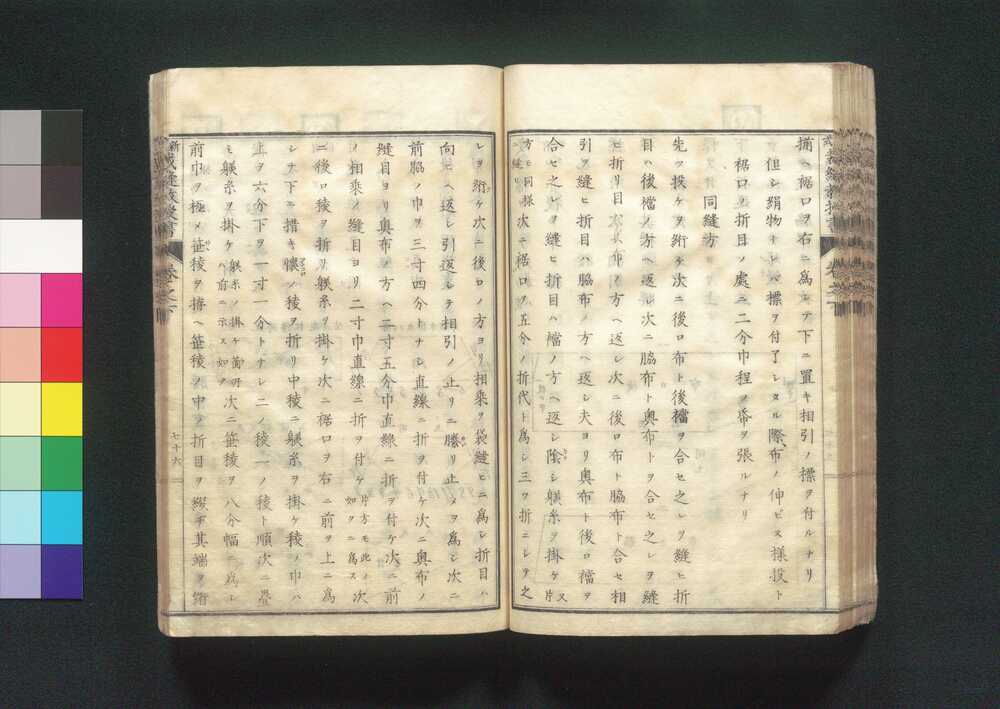 摘ヘ裾口ヲ右ニ爲シテ下ニ置キ相引ノ標ヲ付ルナリ
但シ絹物ナレバ標ヲ付了シタル際布ノ伸ビヌ樣投ト
裾口ヲ折目ノ處ニ二分巾程ノ帋ヲ張ルナリ
同縫方
先ヅ投ケヲ絎ケ次ニ後口布ト後襠ヲ合セ之レヲ縫ヒ折
目ハ後襠ノ方ヘ返シ次ニ脇布ト奥布トヲ合セ之レヲ縫
ヒ折リ目ハ ノ方ヘ返シ次ニ後口布ト脇布ト合セ相
引ヲ縫ヒ折目ハ脇布ノ方ヘ返シ夫ヨリ奥布ト後口襠ヲ
合セ之レヲ縫ヒ折目ハ襠ノ方ヘ返シ陰シ躾糸ヲ掛ケ又片
方モ同樣ニ縫 次ニ裾口ヲ五分ノ折代ト爲シ三ツ折ニシテ之
レヲ絎ケ次ニ後ロノ方ヨリ相乘ヲ袋縫ヒニ爲シ折目ハ
向ヒヘ返シ引返シテ相引ノ止リニ 止 ヲ爲シ次ニ
前脇ノ巾ヲ三寸四分トナシ直線ニ折ヲ付ケ次ニ奥布ノ
縫目ヨリ奥布ノ方ヘ二寸五分巾直線ニ折ヲ付ケ次ニ前
ノ相乘ノ縫目ヨリ二寸巾直線ニ折ヲ付ケ片方モ此ノ如クニ爲ス次
ニ後口稜ヲ折リ躾糸ヲ掛ケ次ニ裾口ヲ右ニ前ヲ上ニ爲
シテ下ニ措キ懐ノ稜ヲ折リ中稜ニ躾糸ヲ掛ケ稜ノ巾ハ
上ヲ六分下ヲ一寸一分トナシ二ノ稜一ノ稜ト順次ニ疊
ミ躾糸ヲ掛ケ躾糸ノ掛ケ箇所ハ前ニ示ス如シ次ニ笹稜ヲ八分幅ニ爲シ
前巾ヲ極メ笹稜ヲ拵ヘ笹稜ノ中ヲ折目ヲ綴ヂ其端ヲ絎
七十六